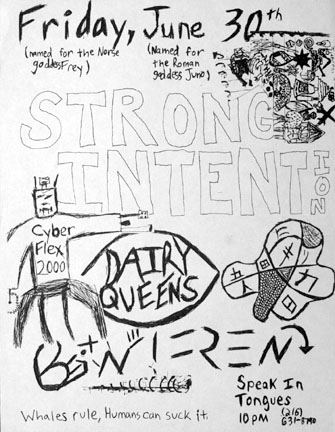 Friday, June 30th
(named for the Norse
goddess Frey)
(Named for
the Roman
goddess Juno)
STRONG
INTENTION
Cyber
Flex
2000
DAIRY
QUEENS
Speak In
Tongues
10 PM (216)
631-5790
Whales rule, Humans can suck it.